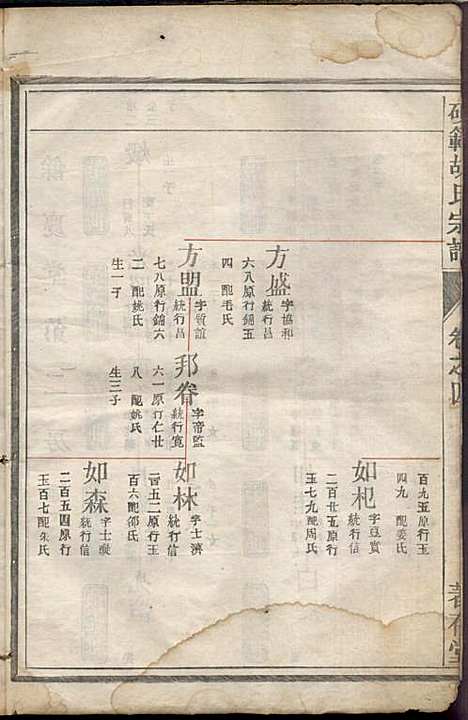 範胡氏宗譜
卷之四
百九五原行玉
四九 配姜氏
方盛
字協和
統行昌
六八原行錦五
四 配毛氏
如杞
字豆實
統行信
二百廿五原行
玉七九配周氏
方盟
字質誼
統行昌
七八原行錦六
二 配姚氏
生一子
邦眷
字帝監
統行寬
六一原行仁廿
八 配姚氏
生三子
如林
字士濟
統行信
一百五二原行玉
百六配邵氏
如森
字士凝
統行信
二百五四原行
玉百七配朱氏